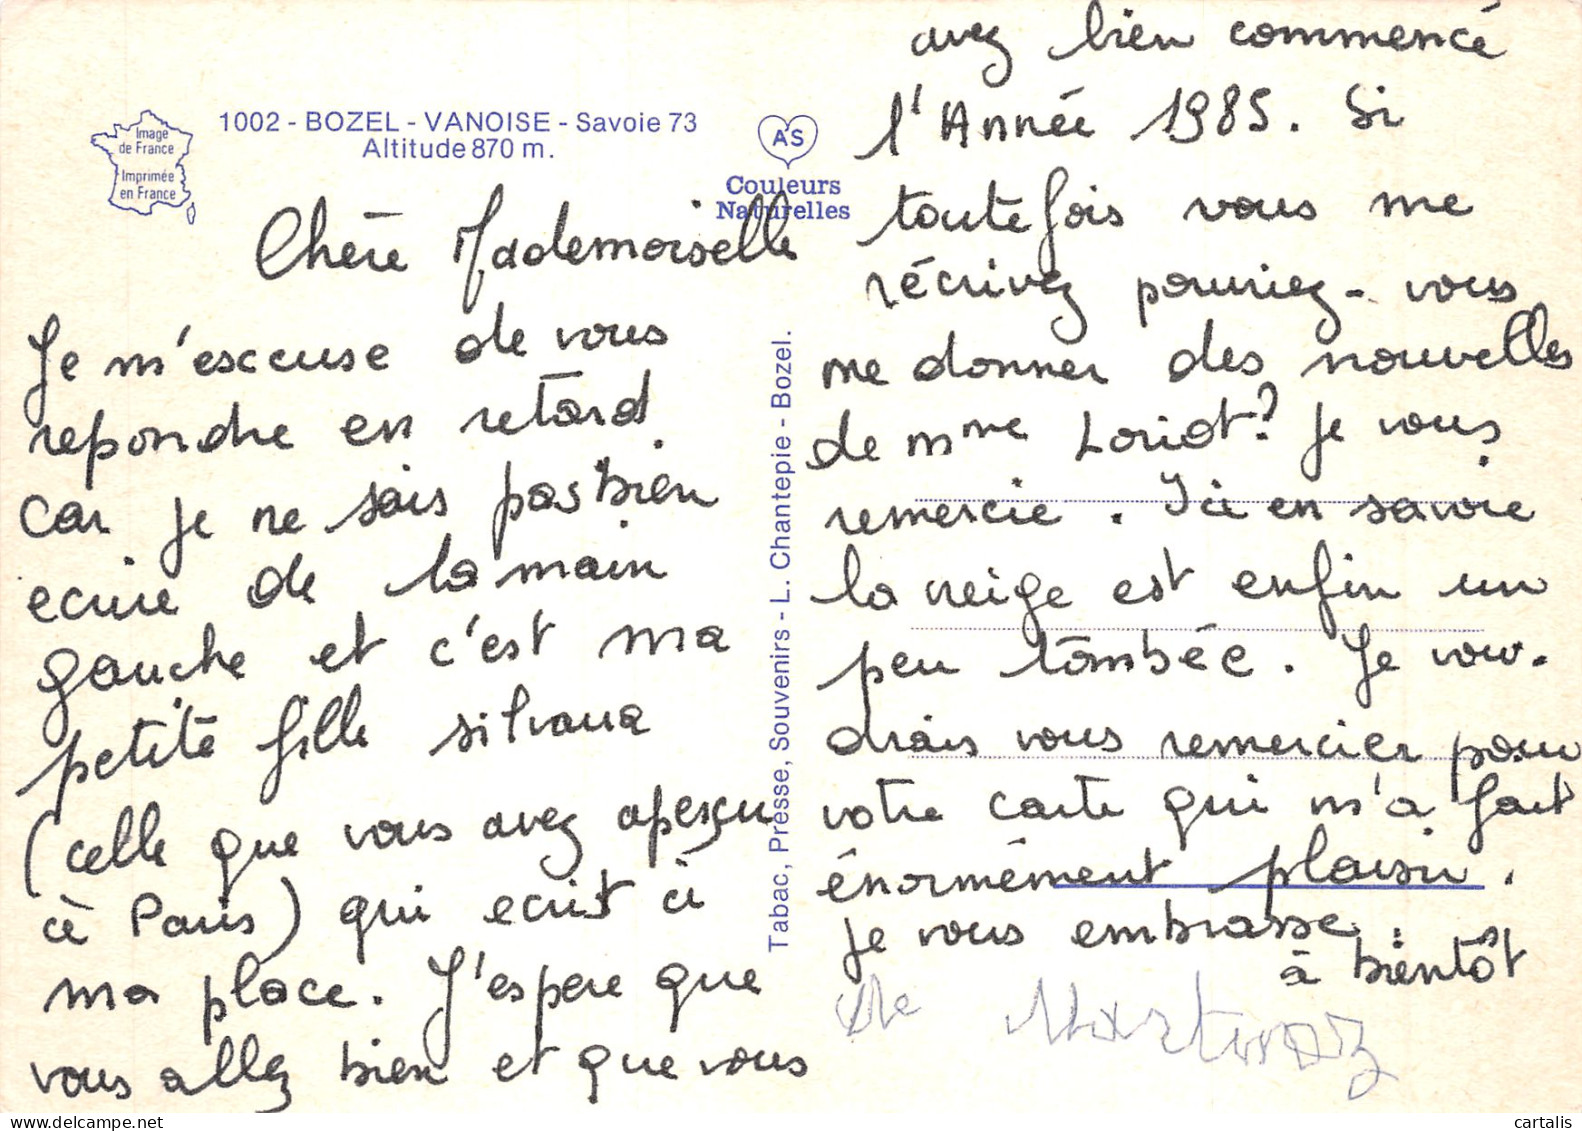 1002 - BOZEL - VANOISE - Savoie 73
Altitude 870 m.
Image
de France
Imprimée
en France
A'S
Couleurs
Naturelles
Chère Mademoiselle
Je m'esccuse de vous
repondre en retard
car je ne sais pas bien
ecrire de la main
gauche et c'est ma
petite fille silvana
(celle que vous avez aperçu
à Paris) qui ecrit à
ma place. J'espere que
vous allez bien et que vous
Tabac, Presse, Souvenirs - L. Chantepie - Bozel.
avez bien commencé
l'Année 1985. Si
toute fois vous me
récrivez pourriez-vous
me donner des nouvelles
de mme Loriot? Je vous
remercie. Ici en savoie
la neige est enfin un
peu tombée. Je vou-
drais vous remercier pour
votre carte qui m'a fait
énormément plaisir.
Je vous embrasse.
à bientôt
cartalis